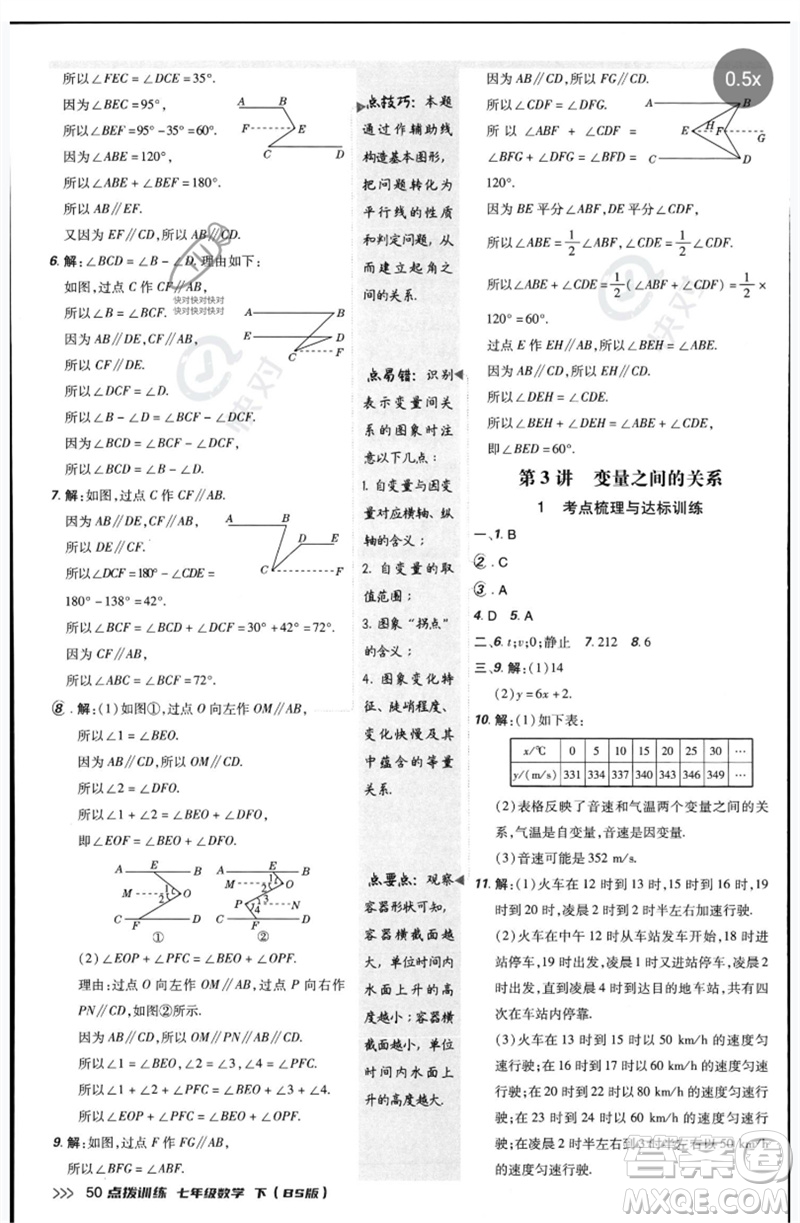 所以∠FEC=∠DCE=35°.
因为∠BEC=95°,
所以∠BEF=95°-35°=60°.
因为∠ABE=120°,
所以∠ABE+∠BEF=180°.
所以AB∥EF.
又因为EF∥CD,所以AB∥CD.
A B
F E
C D
6. 解:∠BCD=∠B-∠D.理由如下:
如图,过点C作CF∥AB,
所以∠B=∠BCF.
因为AB∥DE,CF∥AB,
所以CF∥DE.
所以∠DCF=∠D.
所以∠B-∠D=∠BCF-∠DCF.
因为∠BCD=∠BCF-∠DCF,
所以∠BCD=∠B-∠D.
A B
D E
C F
快对快对快对
快对快对快对
7. 解:如图,过点C作CF∥AB,
因为AB∥DE,
所以CF∥DE.
所以∠DCF=180°-∠CDE=
180°-138°=42°.
所以∠BCF=∠BCD+∠DCF=30°+42°=72°.
因为AB∥CF,
所以∠ABC=∠BCF=72°.
A B
D E
C F
8. 解:(1)如图①,过点O向左作OM∥AB,
所以∠1=∠BEO.
因为AB∥CD,所以OM∥CD.
所以∠2=∠DFO.
所以∠1+∠2=∠BEO+∠DFO,
即∠EOF=∠BEO+∠DFO.
A E B
M 1 2 O
C F D
①
A E B
M 1 2 O
P 3 4 N
C F D
②
(2)∠EOP+∠PFC=∠BEO+∠OPF.
理由:过点O向左作OM∥AB,过点P向右作
PN∥CD,如图②所示.
因为AB∥CD,
所以OM∥PN∥AB∥CD.
所以∠1=∠BEO,∠2=∠3,∠4=∠PFC.
所以∠1+∠2+∠PFC=∠BEO+∠3+∠4,
所以∠EOP+∠PFC=∠BEO+∠OPF.
9. 解:如图,过点F作FG∥AB,
>>> 50 点拨训练 七年级数学 下(BS版)
点技巧:本题
通过作辅助线
构造基本图形,
把问题转化为
平行线的性质
和判定问题,从
而建立起角之
间的关系.
点易错:识别
表示变量间关
系的图象时注
意以下几点:
1. 自变量与因变
量对应横轴、纵
轴的含义;
2. 自变量的取
值范围;
3. 图象“拐点”
的含义;
4. 图象变化特
征、陡峭程度、
变化快慢及其
中蕴含的等量
关系.
点要点:观察
容器形状可知,
容器横截面越
大,单位时间内
水面上升的高
度越小;容器横
截面越小,单位
时间内水面上
升的高度越大.
因为AB∥CD,所以FG∥CD.
所以∠CDF=∠DFG.
所以∠ABF+∠CDF=
∠BFG+∠DFG=∠BFD=
120°.
A B
E H F G
C D
因为BE平分∠ABF,DE平分∠CDF,
所以∠ABE=1/2∠ABF,∠CDE=1/2∠CDF.
所以∠ABE+∠CDE=1/2(∠ABF+∠CDF)=1/2×
120°=60°.
过点E作EH∥AB,所以∠BEH=∠ABE.
因为AB∥CD,所以EH∥CD.
所以∠DEH=∠CDE.
所以∠BEH+∠DEH=∠ABE+∠CDE=60°,
即∠BED=60°.
第3讲 变量之间的关系
1 考点梳理与达标训练
一、1. B
2. C
3. A
4. D 5. A
二、6. t;v;0;静止 7. 212 8. 6
三、9. 解:(1)14
(2)y=6x+2.
10. 解:(1)如下表:
x/℃ 0 5 10 15 20 25 30 …
y/(m/s) 331 334 337 340 343 346 349 …
(2)表格反映了音速和气温两个变量之间的关
系,气温是自变量,音速是因变量.
(3)音速可能是352 m/s.
11. 解:(1)火车在12时到13时,15时到16时,19
时到20时,凌晨2时到2时半左右加速行驶.
(2)火车在中午12时从车站发车,下午2时半
进站停车,17时半进站停车,凌晨1时进站停
车,凌晨3时半左右到达目的地车站,共有四
次在车站内停靠.
(3)火车在13时到15时以50 km/h的速度匀
速行驶;在16时到17时以60 km/h的速度匀
速行驶;在20时到24时以60 km/h的速度匀
速行驶;在凌晨2时半左右到3时半以50 km/h
的速度匀速行驶.
0.5x
快对
快对
答案圈
MXQE.COM